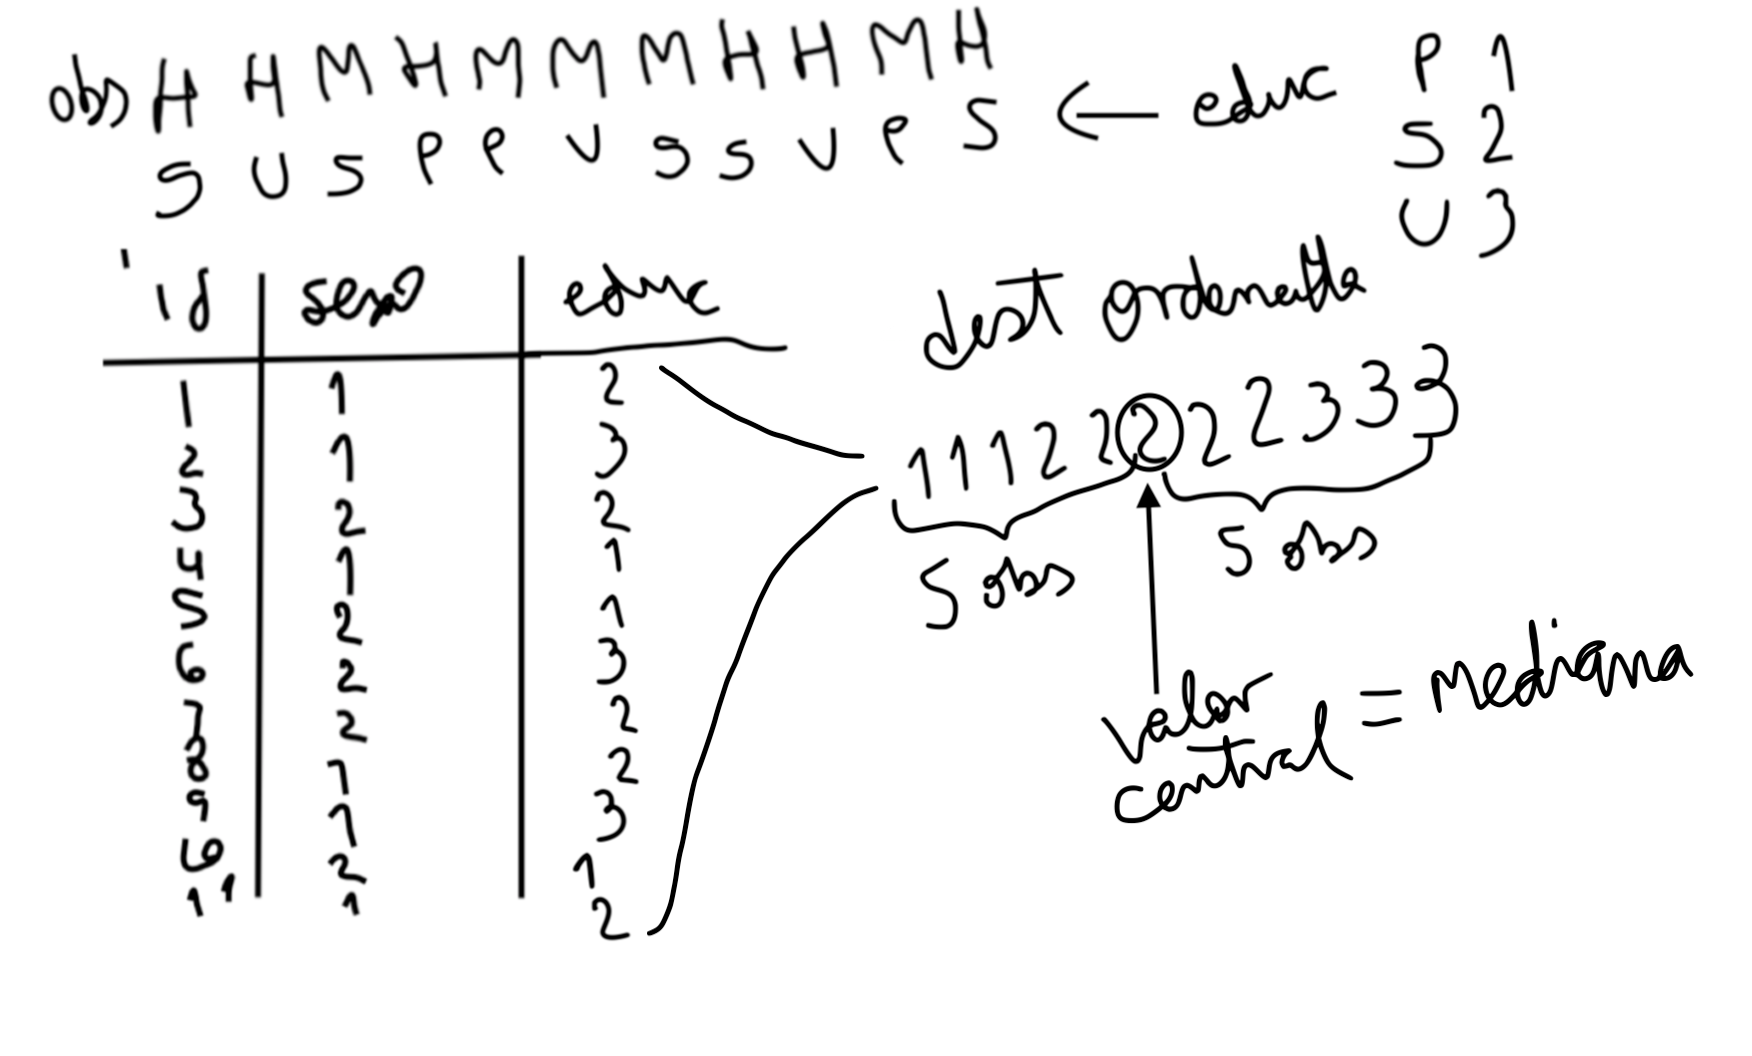 obs H H M H M M M H H M H
S U S P P U S S U P S ← educ
P 1
S 2
U 3
id sexo educ
1 1 2
2 1 3
3 2 2
4 1 1
5 2 1
6 2 3
7 2 2
8 1 2
9 1 3
10 2 1
11 1 2
dest ordenable
1 1 1 2 2 2 2 2 3 3 3
5 obs 5 obs
valor central = Mediana